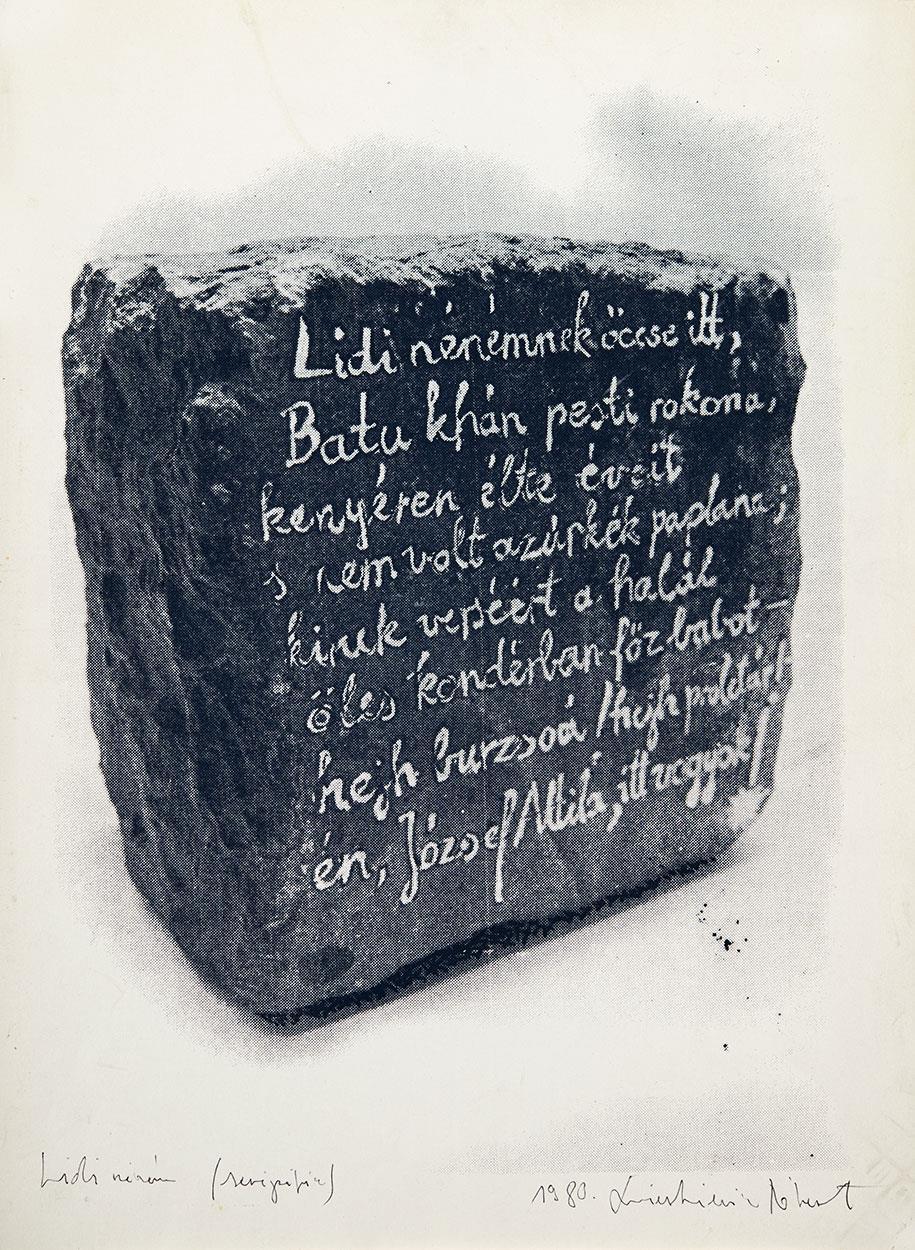 Lidi nénémnek öccse itt,
Batu khán pesti rokona,
kenyéren élte éveit
s nem volt azúrkék paplana;
kinek verséért a halál
öles kondérban főz babot –
hejh burzsoá / hejh proletár –
én, József Attila, itt vagyok /
Lidi néném (serigráfia)
1980.